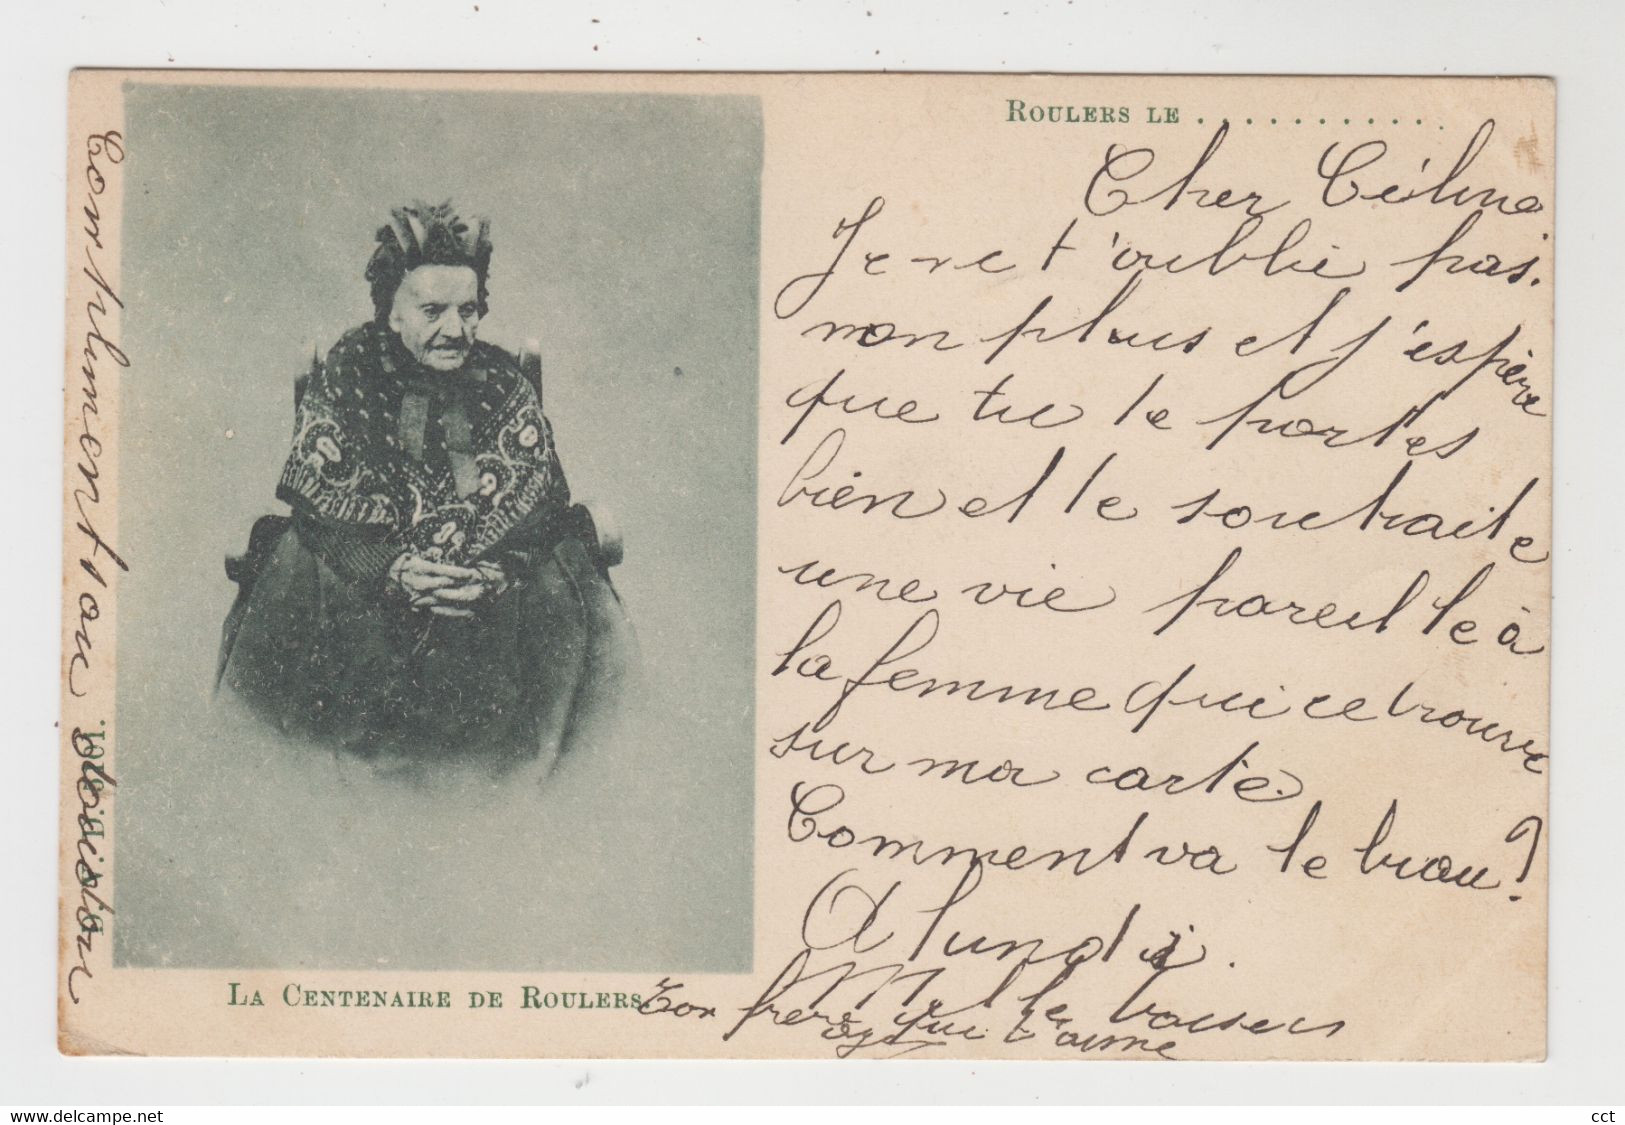 ROULERS LE . . . . . . . . . . .
Cher Céline
Je ne t'oublie pas.
non plus et j'espère
que tu te portes
bien et te soutraite
une vie pareille à
la femme qui ce trouve
sur ma carte.
Comment va le bran?
A lundi.
Mille baisers
Ton frere qui t'aime
LA CENTENAIRE DE ROULERS.
Compliment au
www.delcampe.net
cct